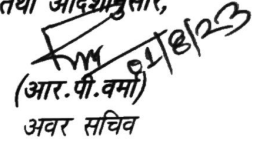 तथा आदेशानुसार,
01/8/23
(आर.पी.वर्मा)
अवर सचिव